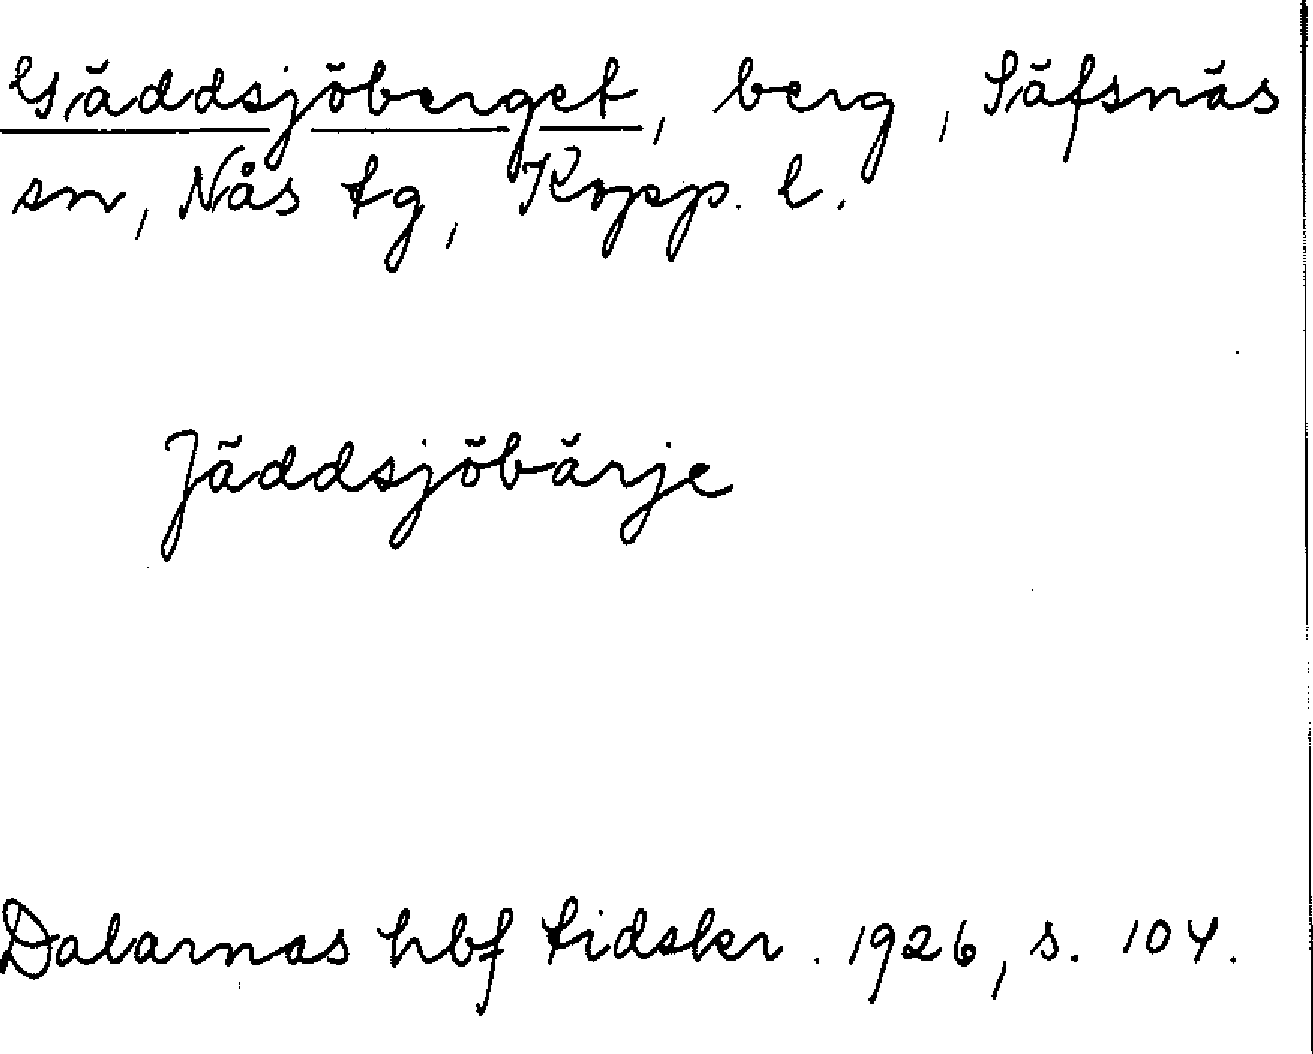 Gäddsjöberget, berg, Säfsnäs
sn, Nås tg, Kopp. l.
Jäddsjöbärje
Dalarnas hbf tidskr. 1926, s. 104.